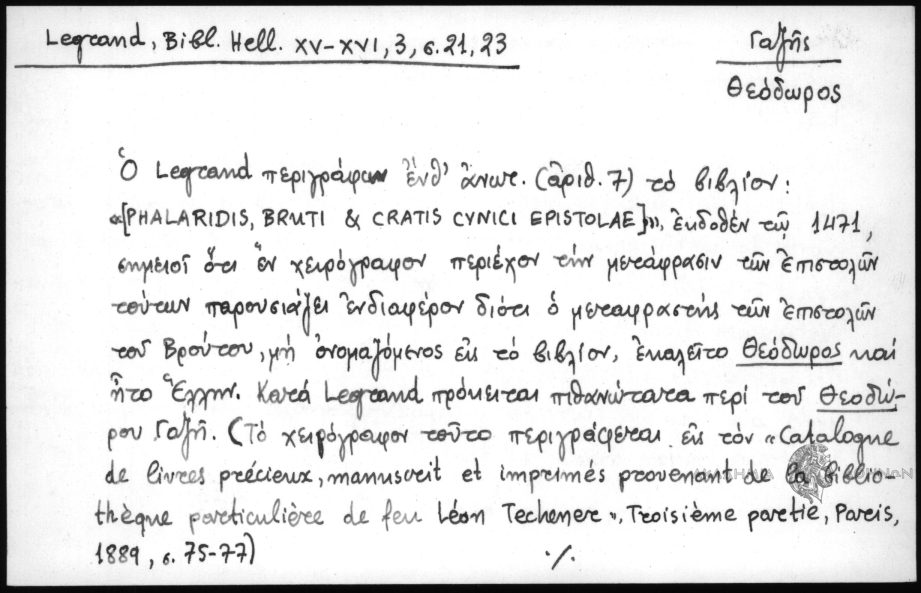 Legrand, Bibl. Hell. XV-XVI, 3, σ. 21, 23
Γαζῆς
Θεόδωρος
Ὁ Legrand περιγράφων ἐνθ' ἀνωτ. (ἀριθ. 7) τὸ βιβλίον:
«[PHALARIDIS, BRUTI & CRATIS CYNICI EPISTOLAE]», ἐκδοθὲν τῷ 1471,
σημειοῖ ὅτι ἓν χειρόγραφον περιέχον τὴν μετάφρασιν τῶν ἐπιστολῶν
τούτων παρουσιάζει ἐνδιαφέρον διότι ὁ μεταφραστὴς τῶν ἐπιστολῶν
τοῦ Βρούτου, μὴ ὀνομαζόμενος εἰς τὸ βιβλίον, ἐκαλεῖτο Θεόδωρος καὶ
ἦτο Ἕλλην. Κατὰ Legrand πρόκειται πιθανώτατα περὶ τοῦ Θεοδώ-
ρου Γαζῆ. (Τὸ χειρόγραφον τοῦτο περιγράφεται εἰς τὸν «Catalogue
de livres précieux, manuscrit et imprimés provenant de la biblio-
thèque particulière de feu Léon Techener», Troisième partie, Paris,
1889, σ. 75-77)
./.